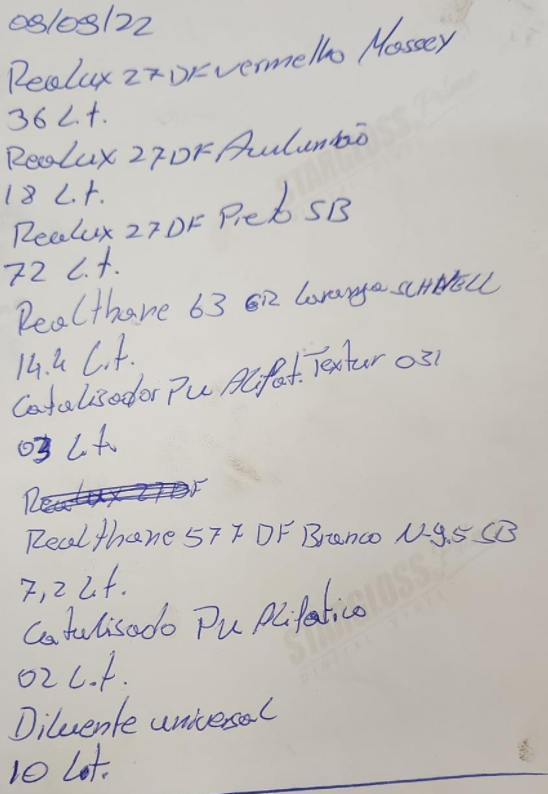 09/09/22
Realux 27DF vermelho Massey
36 Lt.
Realux 27DF
18 Lt.
Realux 27DF Preto SB
72 Lt.
Realthane 63 GR Laranja SCHNELL
14.4 Lt.
Catalisador PU Alifat. Textur 031
03 Lt.
Realux 27DF
Realthane 577 DF Branco N-9.5 SB
7,2 Lt.
Catalisado PU Alifatico
02 Lt.
Diluente universal
10 Lt.
STARGLOSS Prime
STARGLOSS
DIGITAL PRINT